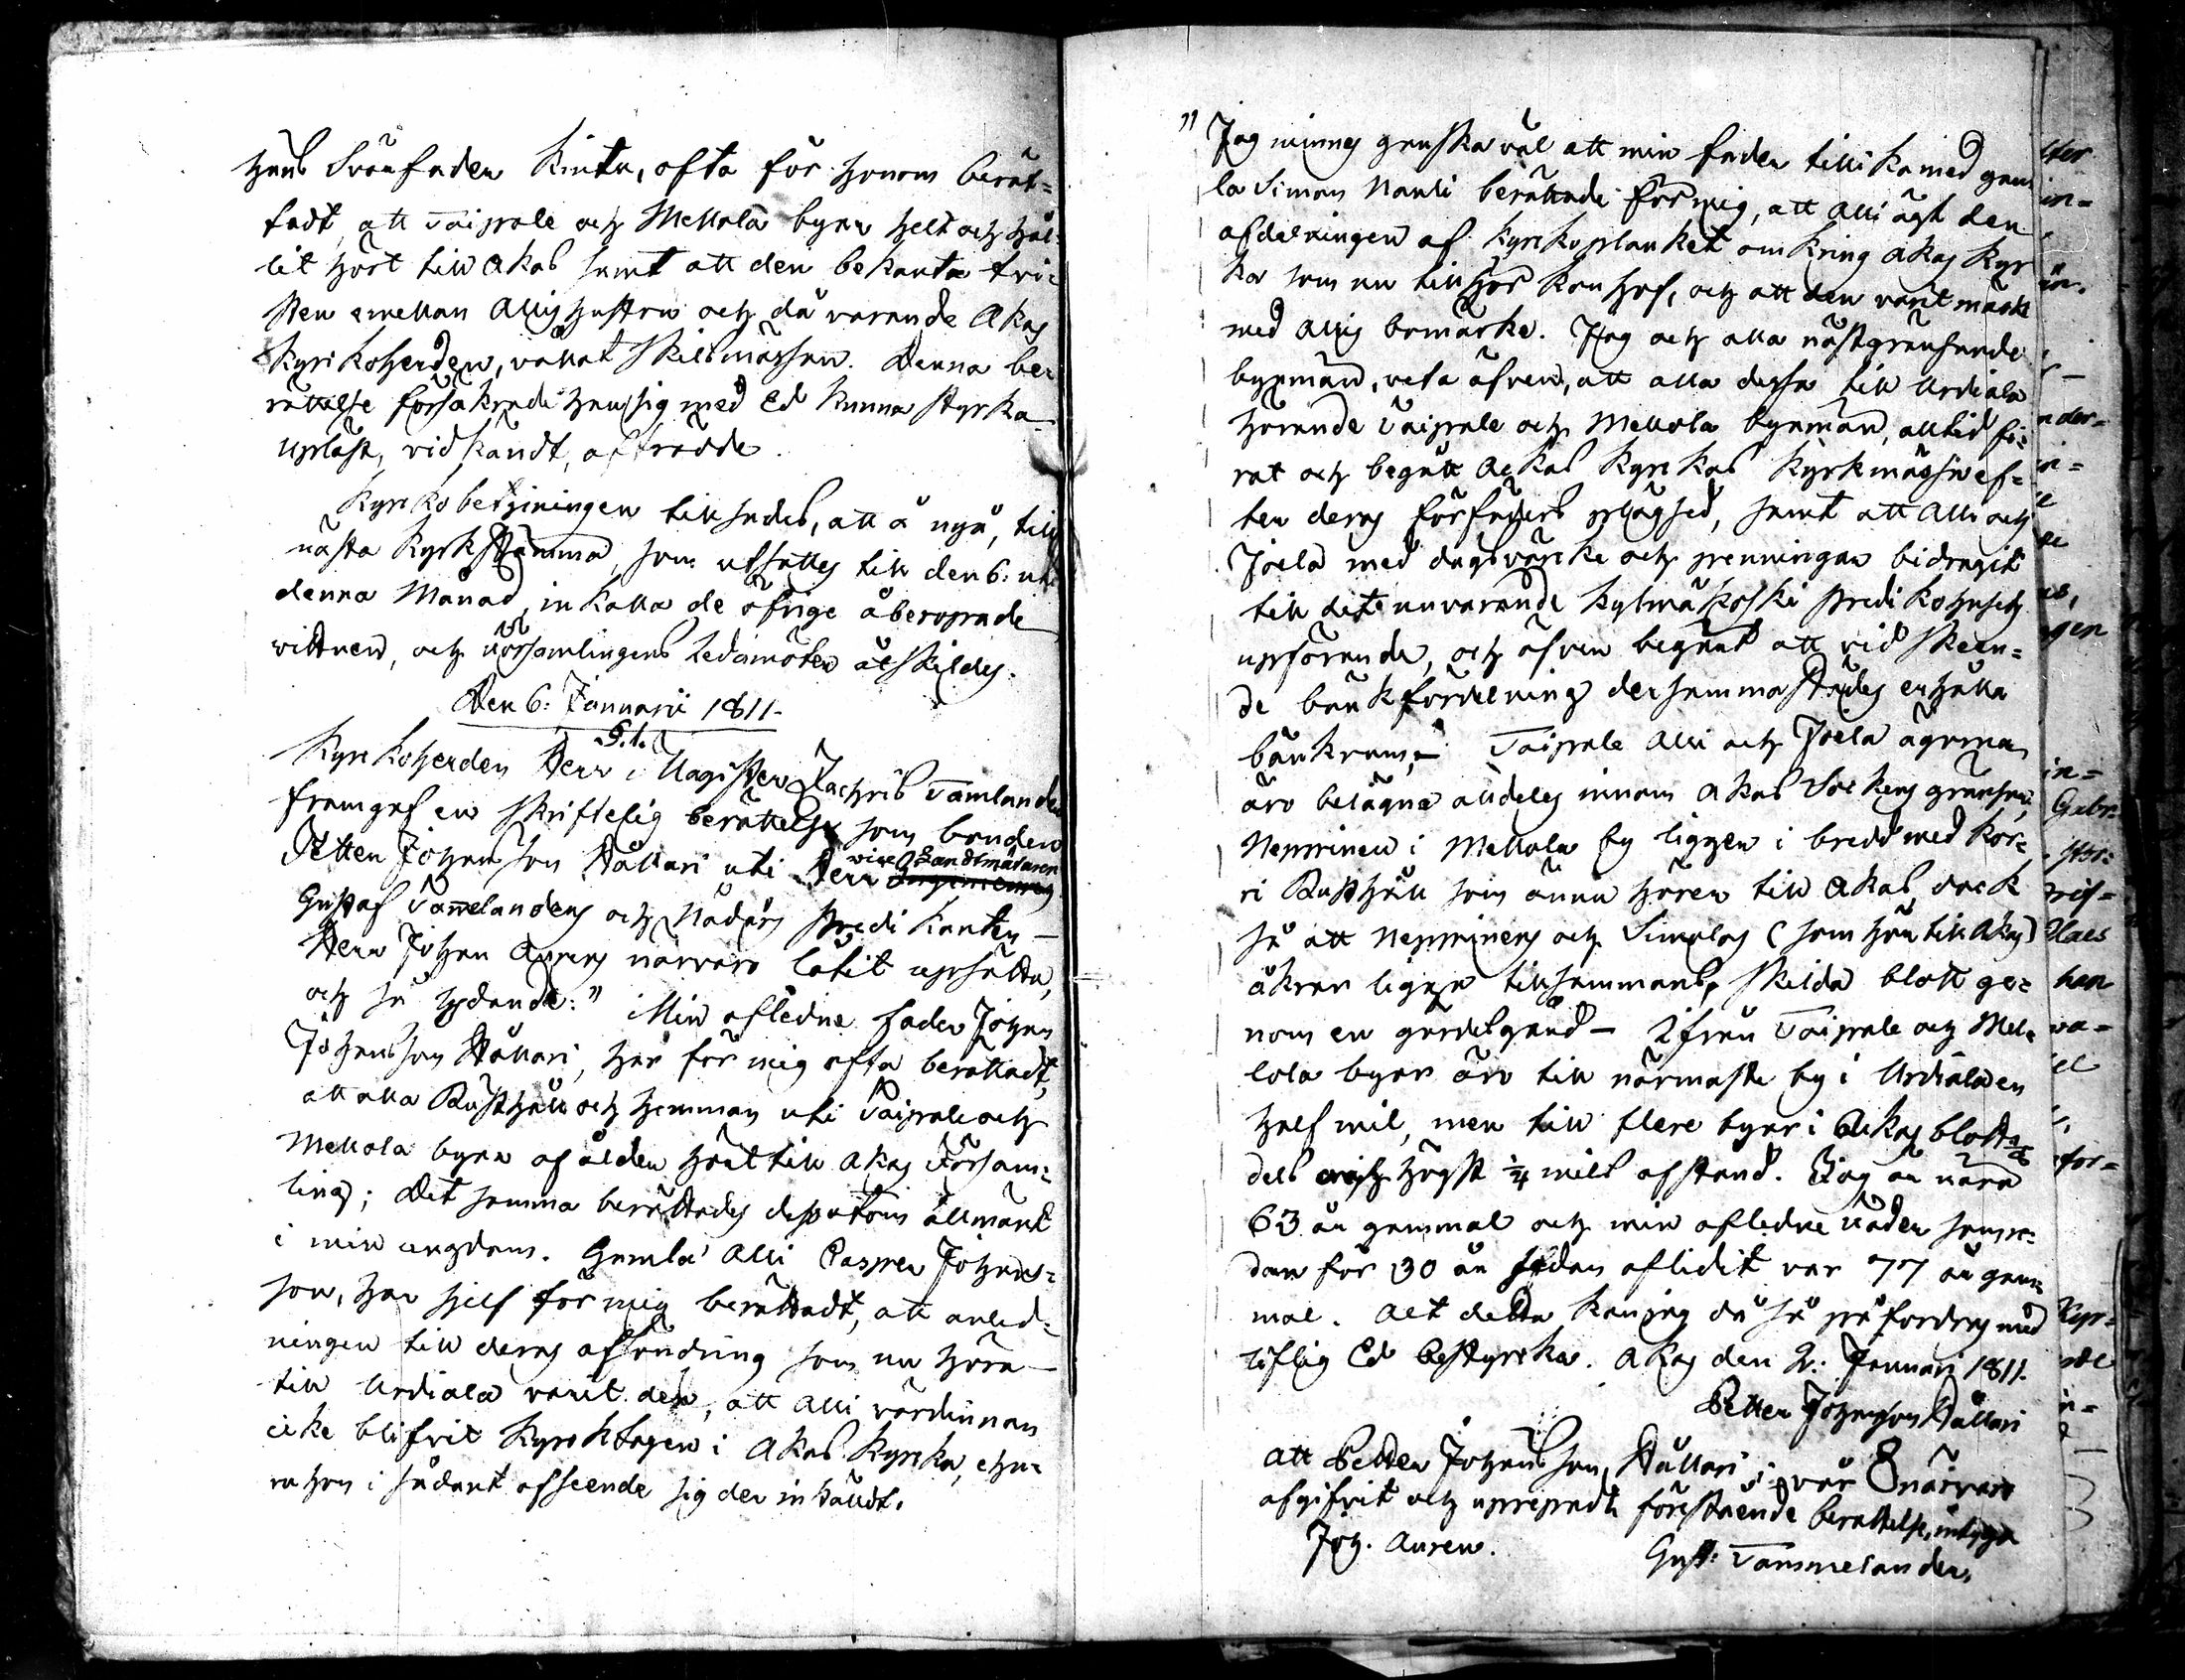 hans Svärfader Kintu, ofta för honom berät-
tadt, att Taipale och Mellola byar helt och hål-
lit hört till Akas samt att den bekanta tvi-
sten emellan Allis hustru och då varande Akas
Kyrkoherden, vållat skilsmässan. Denna be-
rättelse försäkrade han sig med Ed kunna styrka
Upläst, vidkändt, afträdde.
Kyrkobetjeningen tillsades, att å nyo, till
nästa Kyrkstämma, som utsattes till den 6: uti
denna Månad, inkalla de öfrige åberopade
vittnen, och Församlingens Ledamöter åtskildes.
Den 6: Januarii 1811.
§.1.
Kyrkoherden Herr Magister Zachris Tamlander
framgaf en skriftelig berättelse som bonden
Petter Johansson Hållari uti Herr vice Landtmätaren
Gustaf Tammelanders och Nådårs Predikanten
Herr Johan Aurens närvaro låtit upsätta,
och så lydande: " Min afledne fader Johan
Johansson Hållari, har för mig ofta berättadt,
att alla Rusthåll och hemman uti Taipale och
Mellola byar af ålder hört till Akas Försam-
ling; Det samma berättades dessutom allmänt
i min ungdom. Gamla Alli Casper Johans-
son, har sjelf för mig berättadt, att anled-
ningen till deras afsöndring som nu höra
till Urdiala varit den, att Alli värdinnan
icke blifvit Kyrktagen i Akas Kyrka, ehu-
ru hon i sådant afseende sig der inställdt.
" Jag minnes ganska väl att min fader tillika med gam
la Simon Nanli berättade för mig, att Alli ägt den
afdelningen af Kyrkoplanket omkring Akas Kyr
ka som nu tillhör Konhof, och att den varit märkt
med Allis bomärke. Jag och alla nästgränsande
byamän, veta äfven, att alla dessa till Urdiala
hörande Taipale och Mellola byamän, alltid fi-
rat och begått Ackas Kyrkas Kyrkmässa ef-
ter deras förfäders plägsed, samt att Alli och
Joela med dagsvärke och penningar bidragit
till det nuvarande Kylmäkoski predikohusets
upförande, och äfven begärt att vid skeen-
de bänkfördelning dersammastädes erhålla
bänkrum,— Taipale Alli och Joela ägor
äro belägna alldeles innom Akas Sockens gränsor,
Nepprinen i Mellola by ligger i bredd med Kor-
ri Rusthåll som ännu hörer till Akas dock
så att Nepprinens och Simolas (som hör till Akas)
åkrar ligga tillsammans, skilda blott ge-
nom en gärdelsgård — Ifrån Taipale och Mel-
lola byar äro till närmaste by i Urdiala en
half mil, men till flere byar i Akas blott
dels högst ¼ mils afstånd. Jag är nära
63 år gammal och min afledne Fader som re-
dan för 30 år sedan aflidit var 77 år gam
mal. Alt detta kan jag då så påfordras med
liflig Ed bestyrcka. Akas den 2: Januari 1811.
Petter Johansson Hållari
Att Petter Johansson Hållari i vår närvaro
afgifvit och uprepadt förestående berättelse, intyga
Joh. Auren.
Gust: Tammelander.